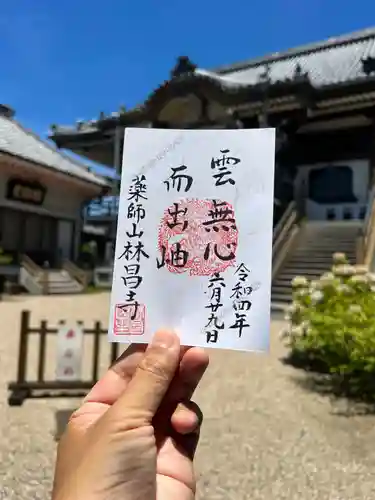 雲無心
而出岫
薬師山林昌寺
令和四年
六月廿九日